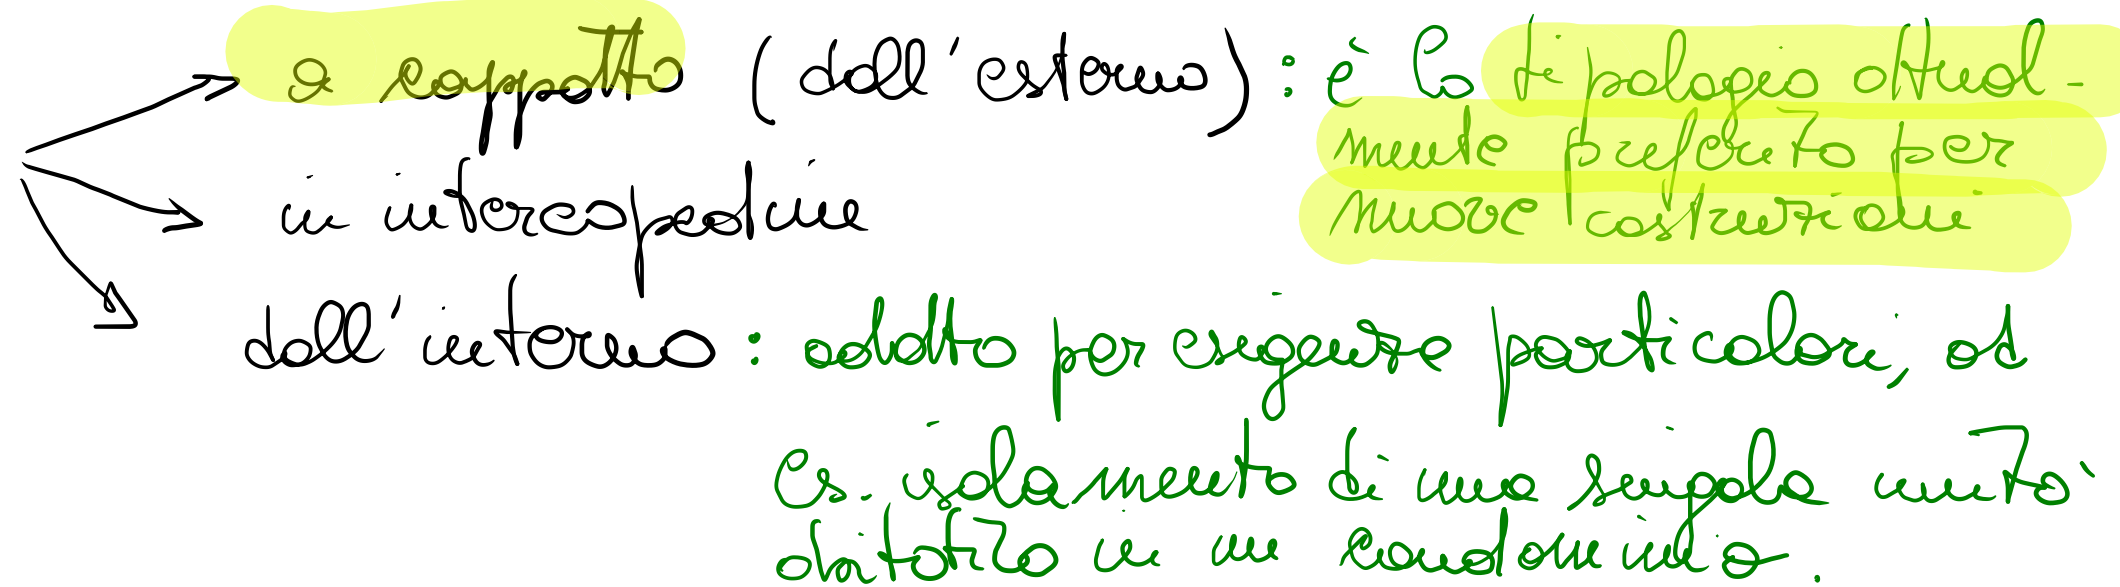 a cappotto (dall'esterno): è la tipologia attual-
mente preferita per
nuove costruzioni
in intercapedine
dall'interno: adatto per esigenze particolari, ad
es. isolamento di una singola unità
abitativa in un condominio.